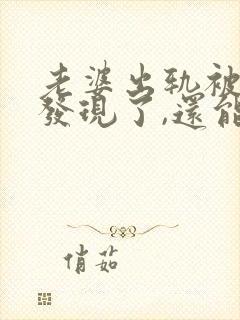 老婆出轨被
發現了,還能
俏茹